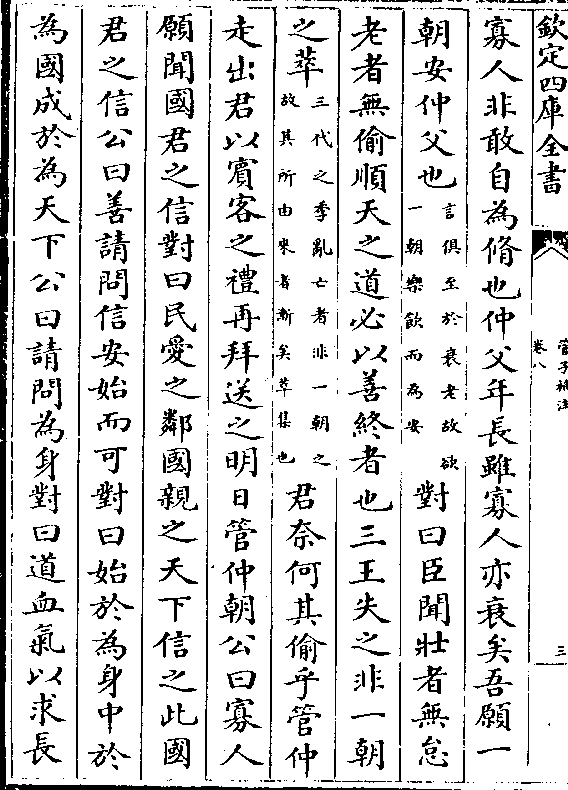 欽定四庫全書
管子補注
卷八
三
寡人非敢自為脩也仲父年長雖寡人亦衰矣吾願一
朝安仲父也言俱至於衰老故欲一朝樂飲而為安對曰臣聞壯者無怠
老者無偷順天之道必以善終者也三王失之非一朝
之萃三代之季亂亡者非一朝之故其所由來者漸矣萃集也君奈何其偷乎管仲
走出君以賓客之禮再拜送之明日管仲朝公曰寡人
願聞國君之信對曰民愛之鄰國親之天下信之此國
君之信公曰善請問信安始而可對曰始於為身中於
為國成於為天下公曰請問為身對曰道血氣以求長